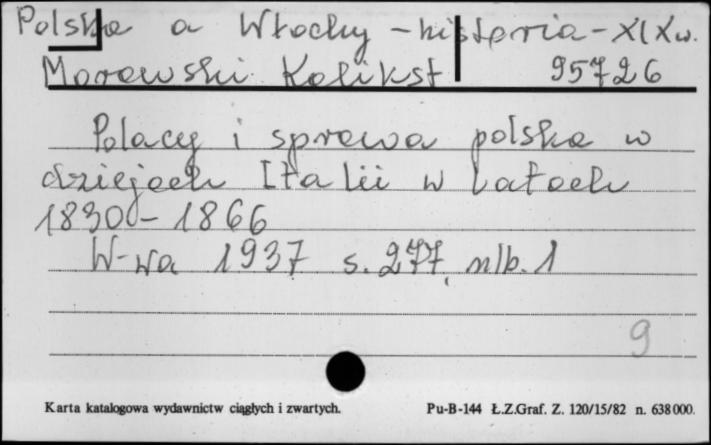 Polska a Włochy - historia - XIX w.
Morawski Kalikst 95726
Polacy i sprawa polska w
dziejach Italii w latach
1830 - 1866
W-wa 1937 s. 277, nlb. 1
9
Karta katalogowa wydawnictw ciągłych i zwartych. Pu-B-144 Ł.Z.Graf. Z. 120/15/82 n. 638000.